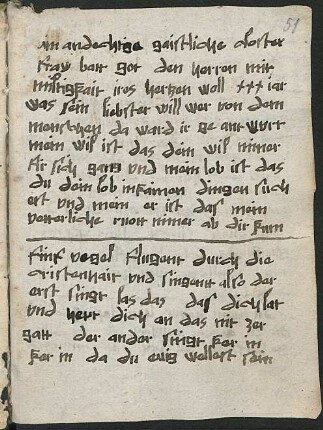 51
ain andechtige gaistliche closter
fraw batt got den herren mit
miltigkait irs hertzen woll xxx iar
was sein liebster will wer von dem
menschen da ward ir ge ant wurt
mein wil ist das dein wil nimer
sich gang vnd mein lob ist das
du dein lob in kainen dingen such
est vnd mein er ist das mein
vetterliche nimer ab dir kum
fünf vogel flugent durch die
cristenhait vnd singent also der
erst singt las das das dich lat
vnd herr dich an das nit zer
gatt der ander singt ker in
ker in da du ewig wellest sein